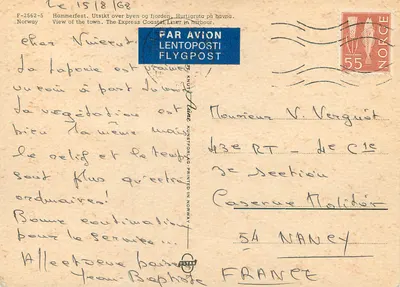 le 15/8/68
F-2862-6 Hammerfest. Utsikt over byen og fjorden. Hurtigruta på havna.
Norway View of the town. The Express Coastal Liner in harbour.
cher
La Laponie est vraiment
un coin à part dans
La végétation est
bien la même mais
le relief et le temps
sont plus qu'extra
ordinaires!
Bonne continuation
pour le service...
Affectueux baisers
Jean-Baptiste
PAR AVION
LENTOPOSTI
FLYGPOST
KUNSTFORLAG PRINTED IN NORWAY
NORGE
55
Monsieur V. Verguet
43e RT - 4e Cie
3e section
Caserne Molitor
54 NANCY
FRANCE